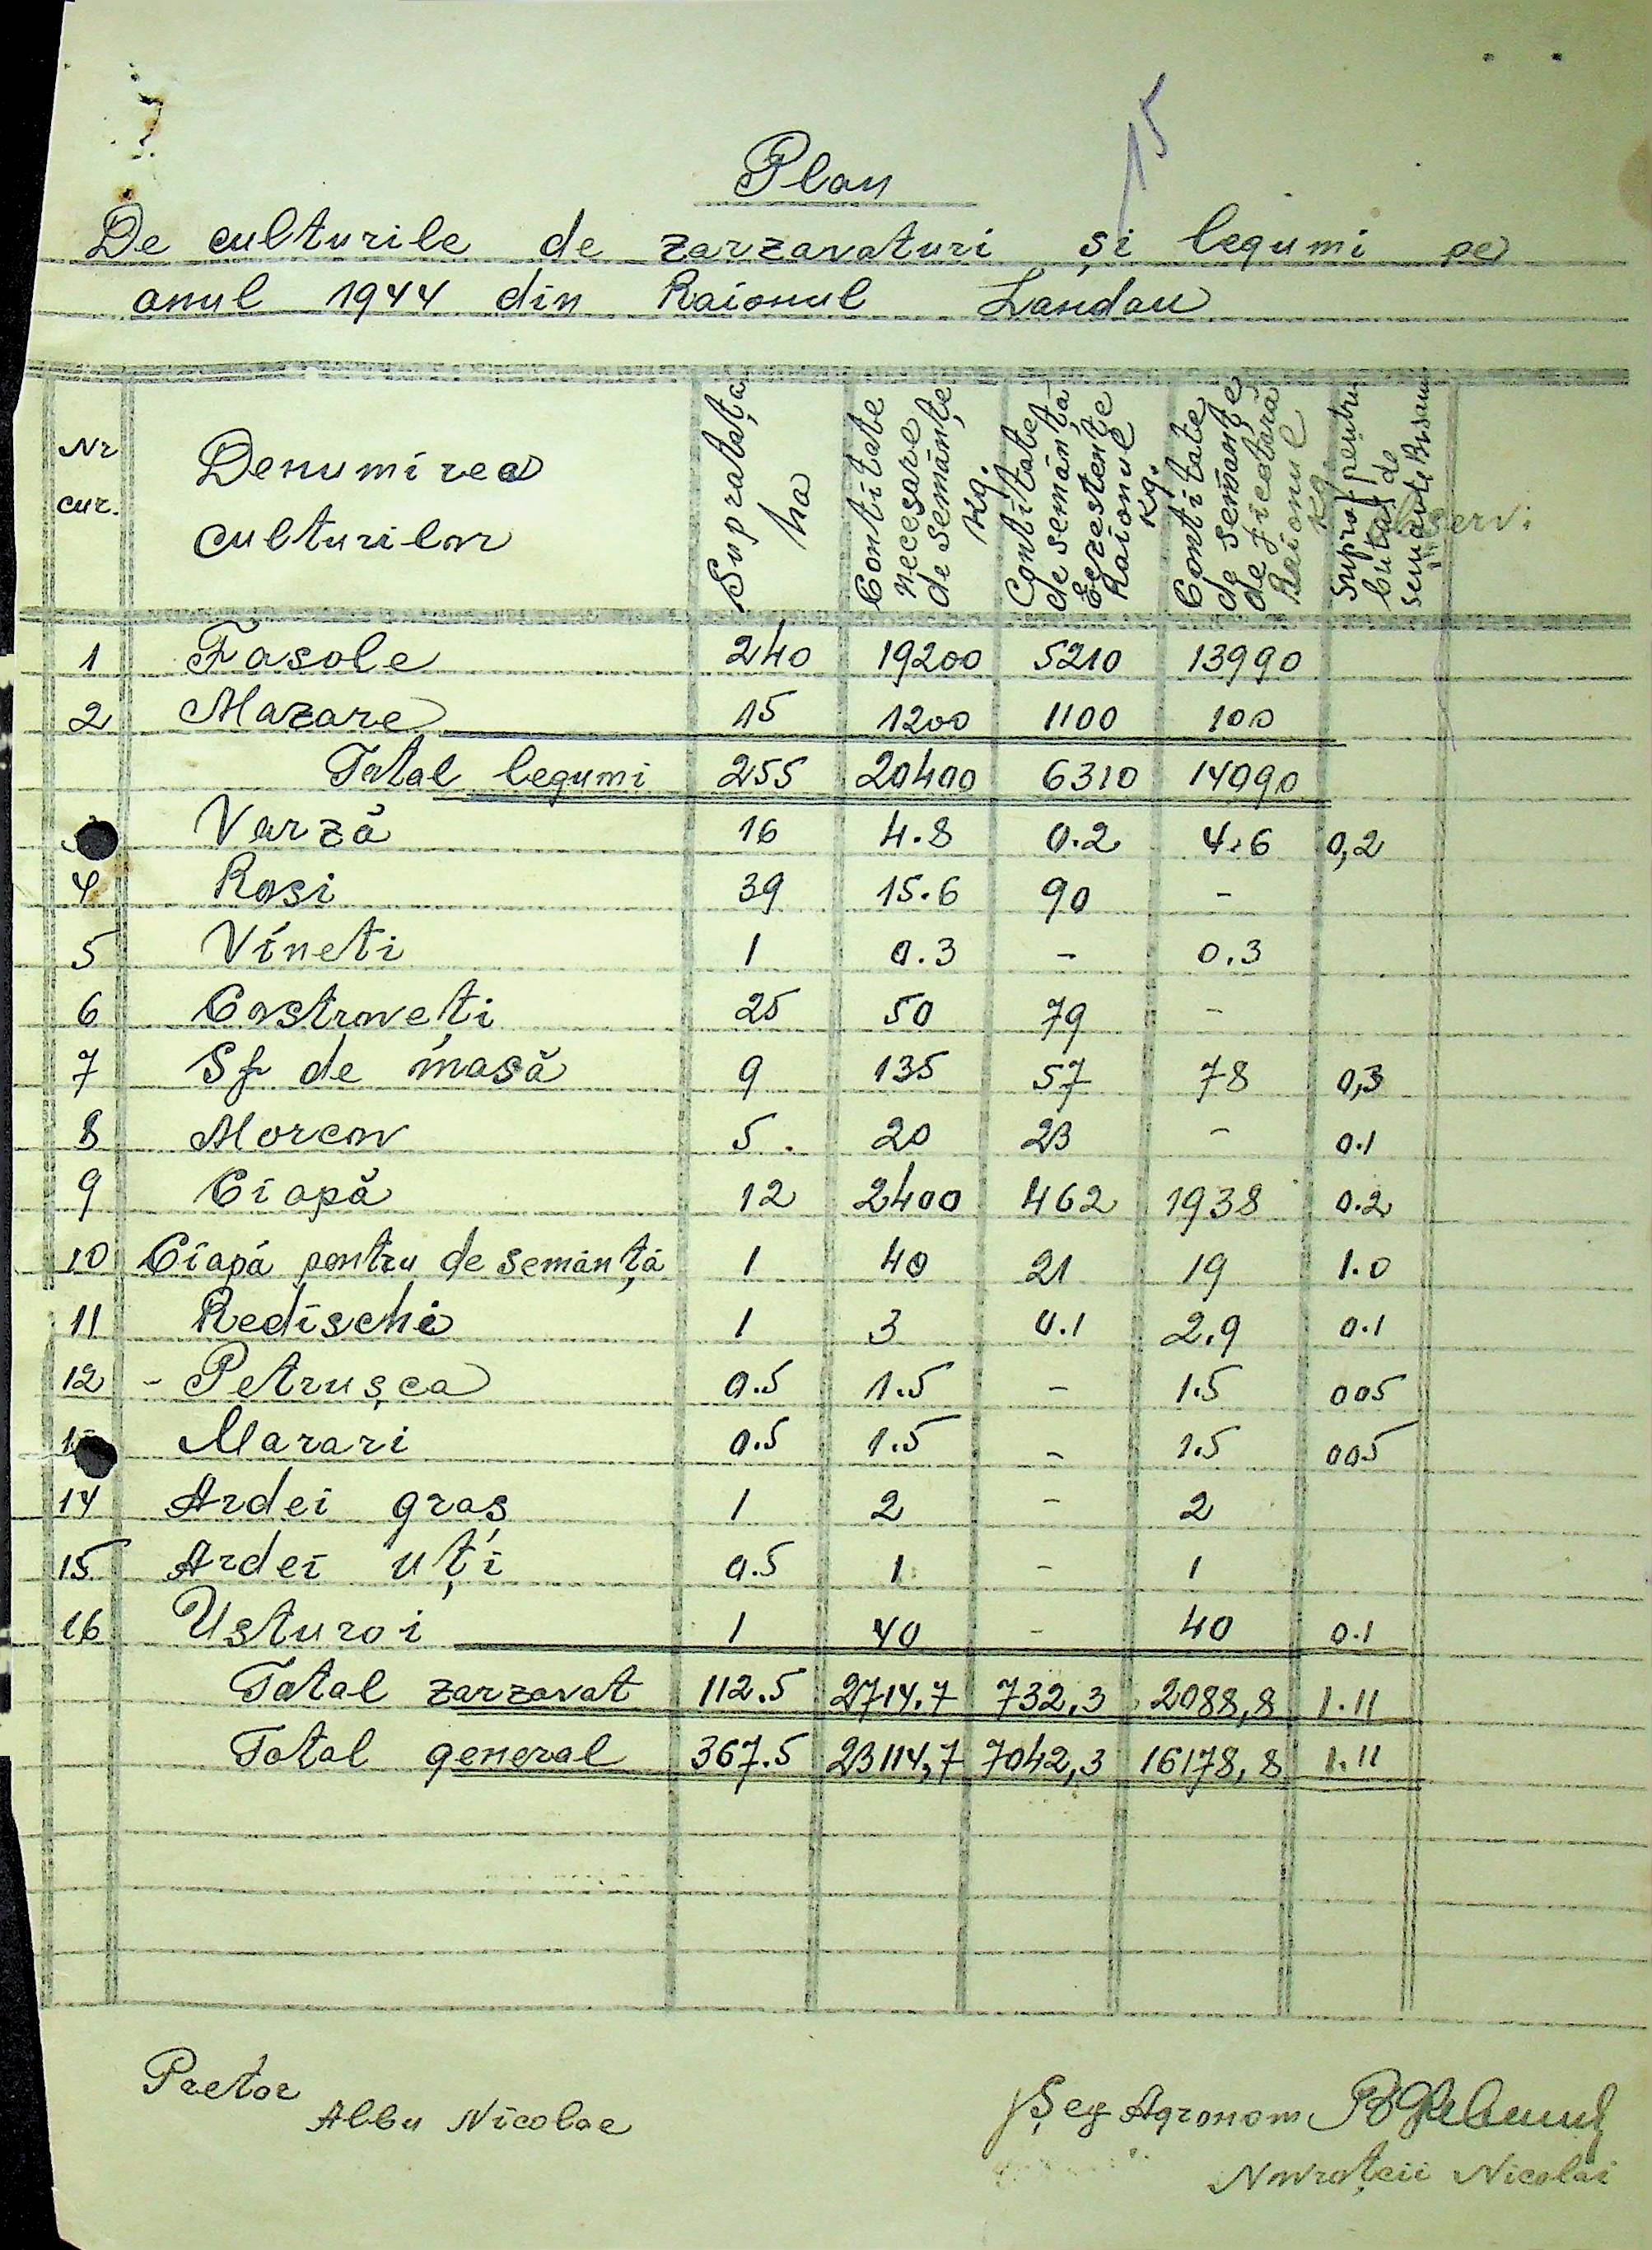 15
Plan
De culturile de zarzavaturi și legumi pe
anul 1944 din Raionul Landau
Nr cur. | Denumirea culturilor | Suprafața ha | Contitate necesare de semănțe Kg. | Contitate de semănță Eczestente Raionul Kg. | Contitate de semănțe deficetară Raionul Kg | Supraf pentru butaș de semanță | observ:
1 Fasole 240 19200 5210 13990
2 Mazare 15 1200 1100 100
Total legumi 255 20400 6310 14090
Varză 16 4.8 0.2 4.6 0,2
4 Rosi 39 15.6 90 -
5 Vineti 1 0.3 - 0.3
6 Castroveți 25 50 79 -
7 Sf de masă 9 135 57 78 0,3
8 Morcov 5. 20 23 - 0.1
9 Ciapă 12 2400 462 1938 0.2
10 Ciapă pentru de semănță 1 40 21 19 1.0
11 Redischi 1 3 0.1 2.9 0.1
12 - Petrușca 0.5 1.5 - 1.5 005
Marari 0.5 1.5 - 1.5 005
14 Ardei graș 1 2 - 2
15 Ardei uți 0.5 1 - 1
16 Usturoi 1 40 - 40 0.1
Total zarzavat 112.5 2714.7 732,3 2088,8 1.11
Total general 367.5 23114,7 7042,3 16178,8 1.11
Pretor
Albu Nicolae
Șeg Agronom
Nicolai